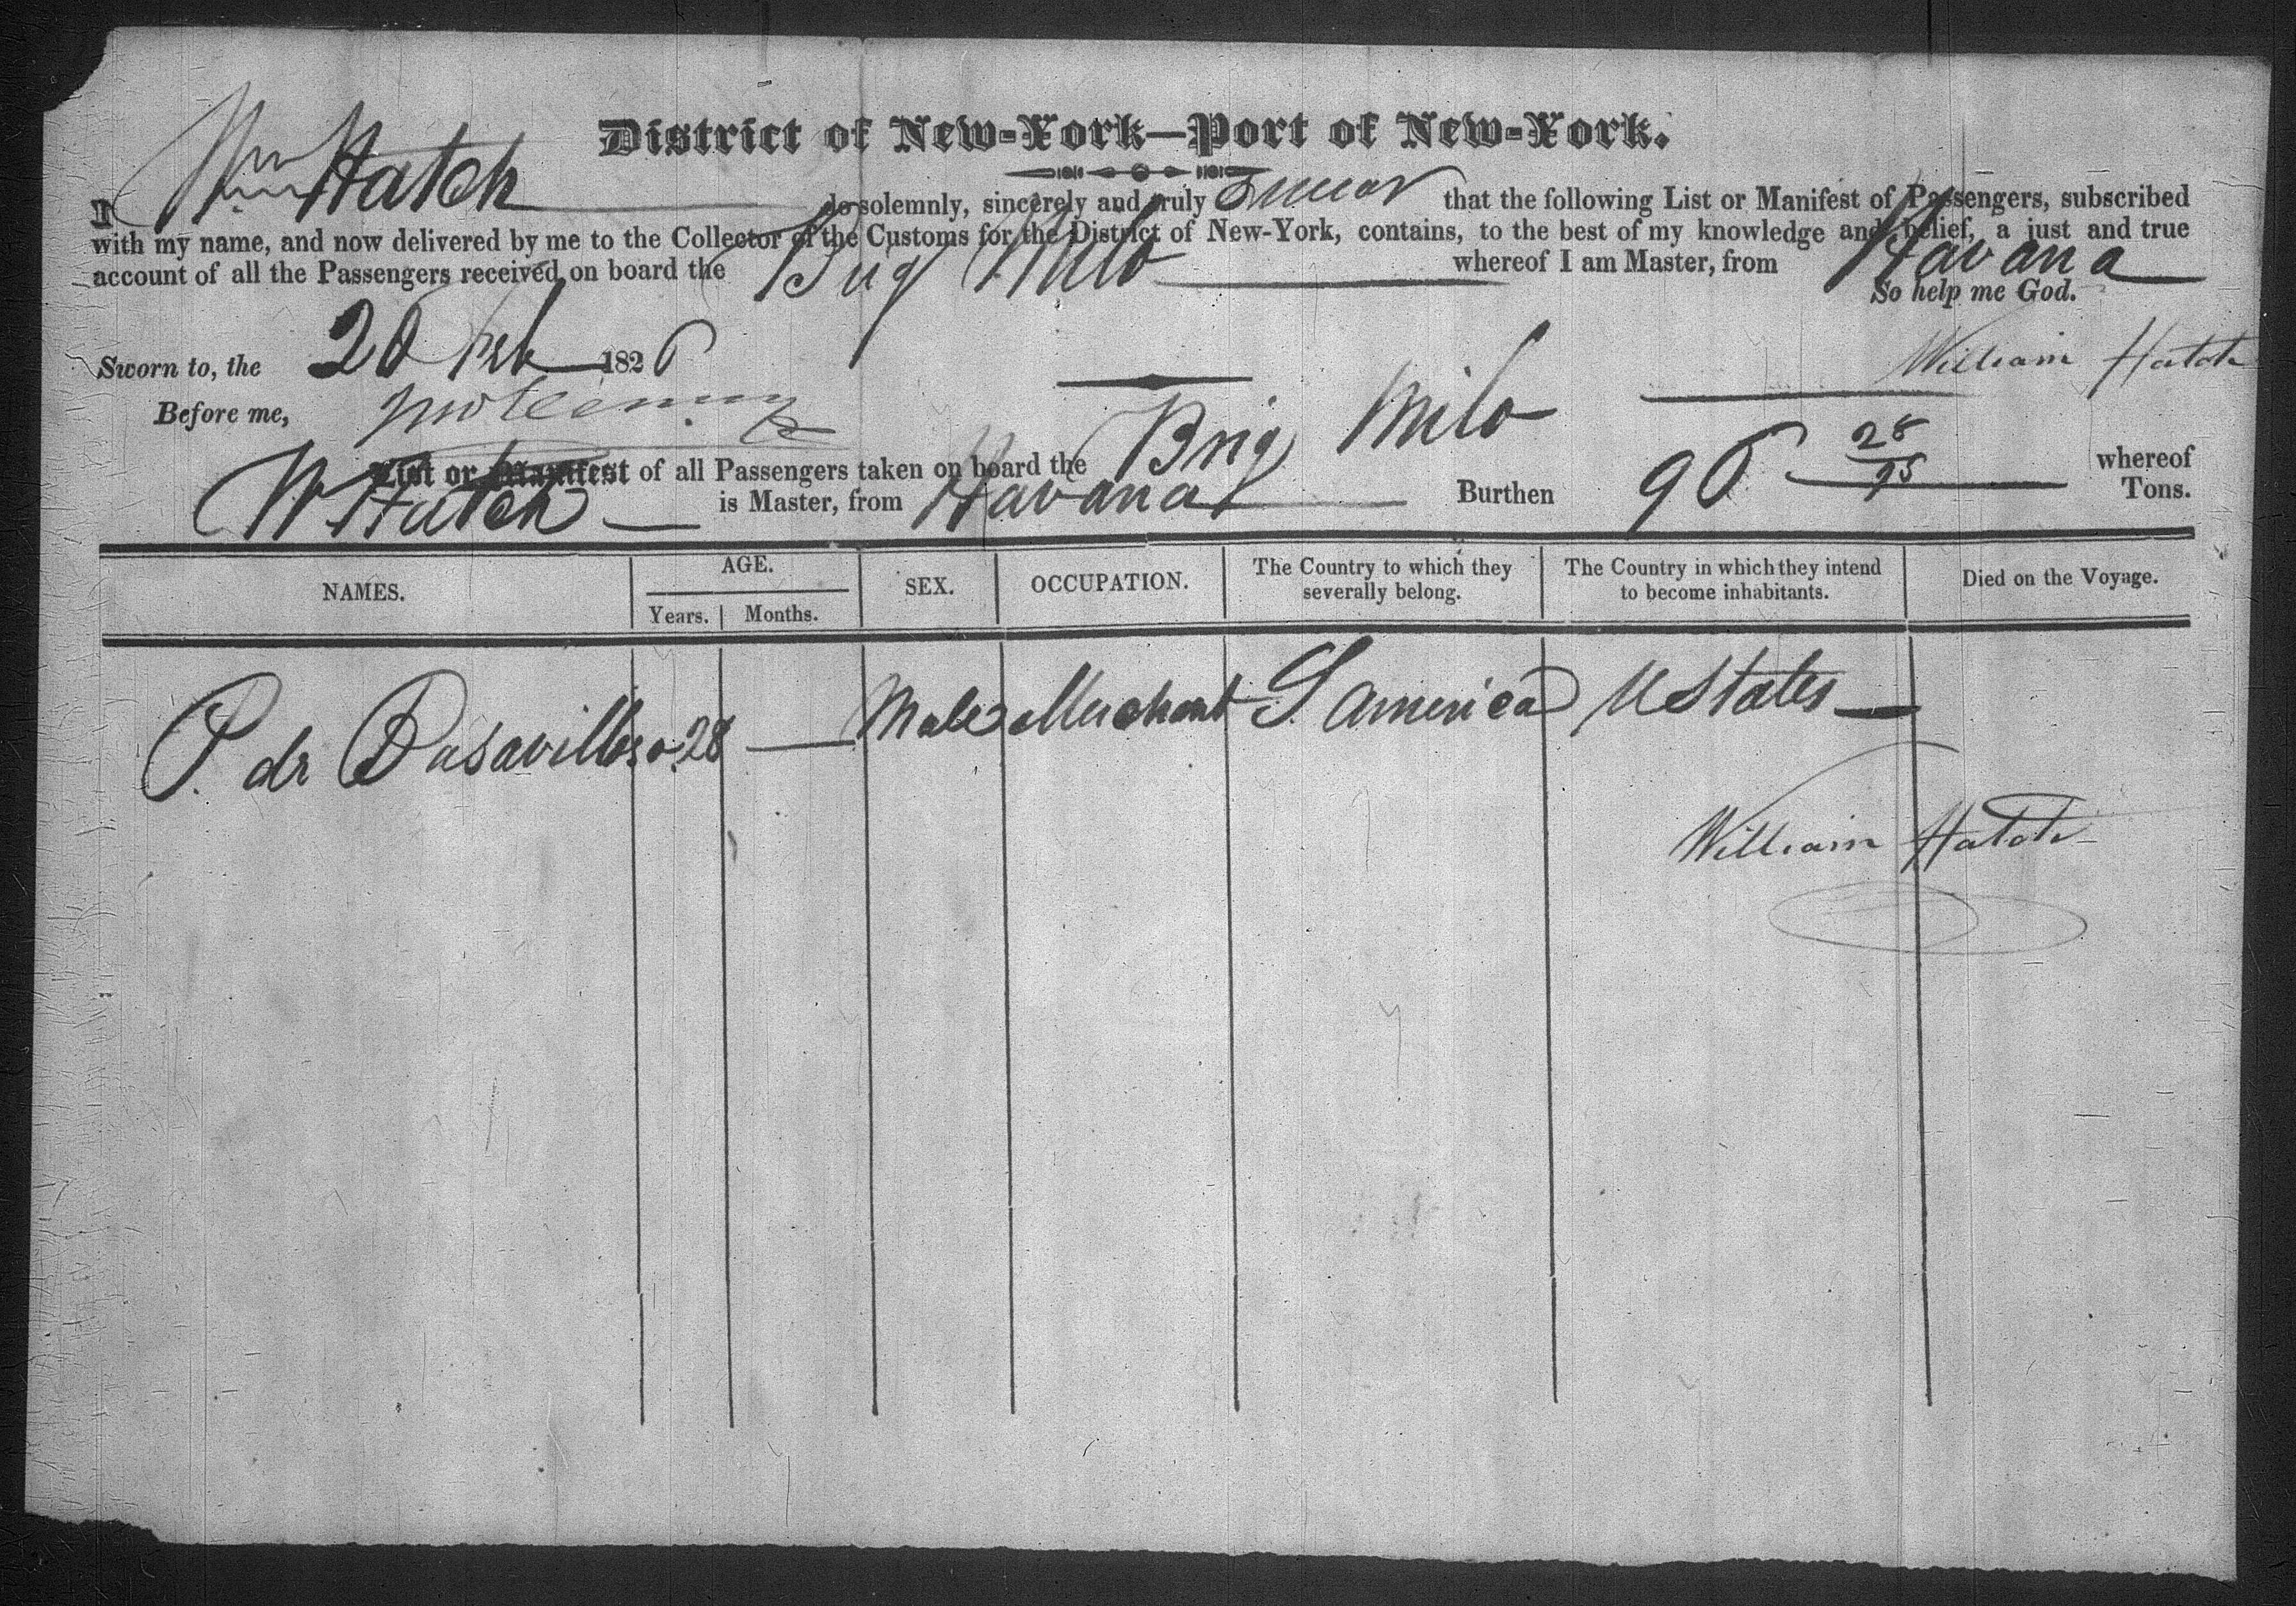 District of New-York—Port of New-York.
I Wm Hatch do solemnly, sincerely and truly swear that the following List or Manifest of Passengers, subscribed
with my name, and now delivered by me to the Collector of the Customs for the District of New-York, contains, to the best of my knowledge and belief, a just and true
account of all the Passengers received on board the Brig Milo whereof I am Master, from Havana
So help me God.
Sworn to, the 20 Feb 1826
William Hatch
Before me,
List or Manifest of all Passengers taken on board the Brig Milo whereof
W Hatch is Master, from Havana Burthen 96 28/95 Tons.
NAMES. AGE. SEX. OCCUPATION. The Country to which they severally belong. The Country in which they intend to become inhabitants. Died on the Voyage.
Years. Months.
P. de Basavilbaso 28 — Male Merchant S. America U States —
William Hatch